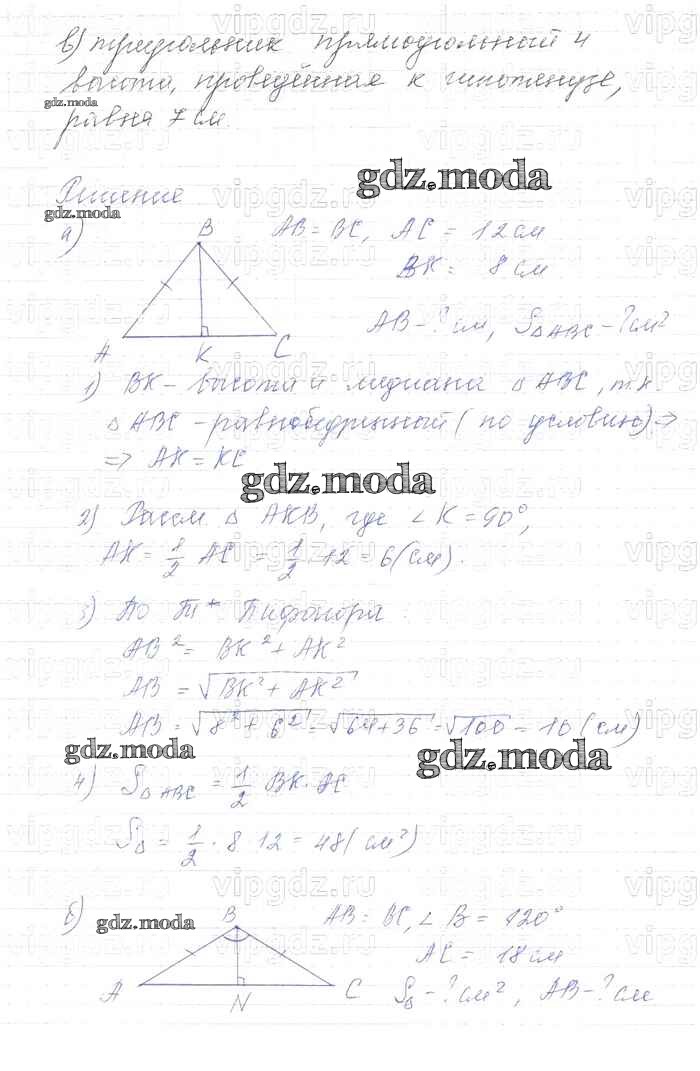 в) треугольник прямоугольный и
высота, проведённая к гипотенузе,
gdz.moda
равна 7 см.
Решение
gdz.moda
gdz.moda
а)
B
AB = BC, AC = 12 см
BK = 8 см
AB - ? см, S△ABC - ? см²
A K C
1) BK - высота и медиана △ ABC, т.к.
△ ABC - равнобедренный (по условию) ⇒
⇒ AK = KC
gdz.moda
2) Рассм. △ AKB, где ∠K = 90°,
AK = 1/2 AC = 1/2 · 12 = 6 (см).
3) По т. Пифагора:
AB² = BK² + AK²
AB = √BK² + AK²
AB = √8² + 6² = √64+36 = √100 = 10 (см)
gdz.moda
gdz.moda
4) S△ABC = 1/2 BK · AC
S△ = 1/2 · 8 · 12 = 48 (см²)
б)
gdz.moda
B
AB = BC, ∠B = 120°
AC = 18 см
S△ - ? см², AB - ? см
A N C
vipgdz.ru